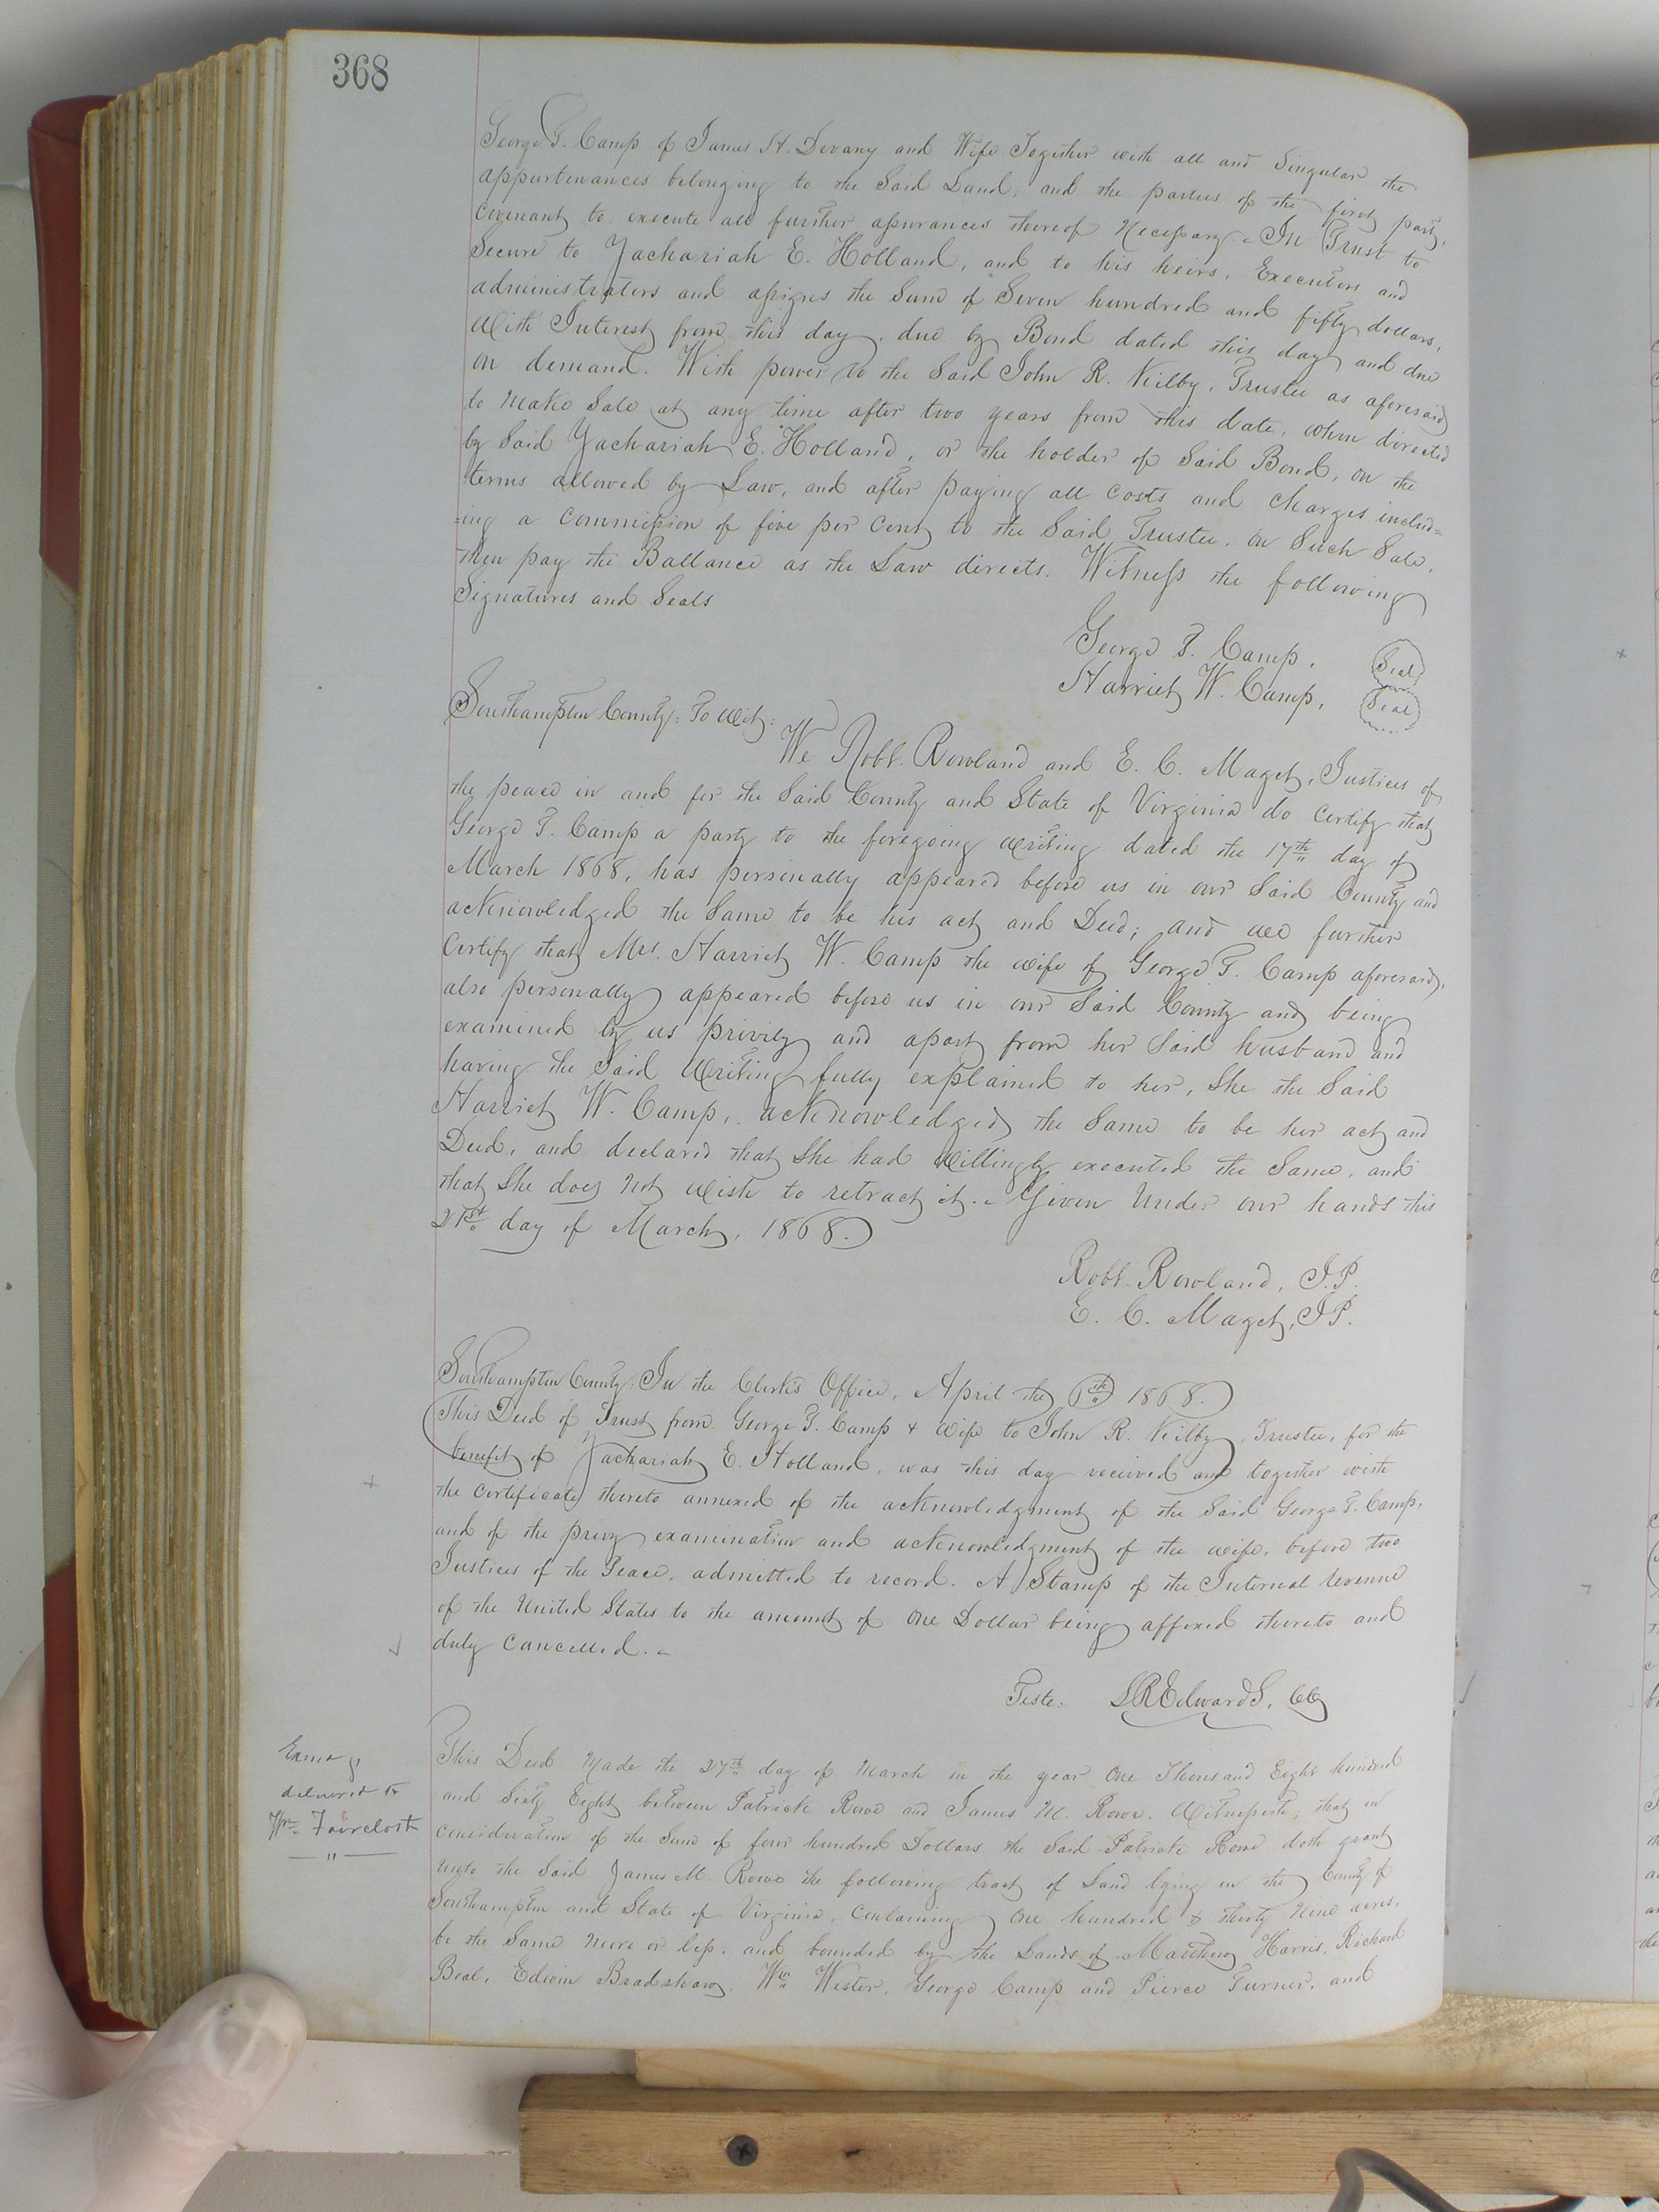 368
George T. Camp of James H. Devany and Wife. Together with all and Singular the
appurtenances belonging to the Said Land, and the parties of the first part,
covenant to execute all further assurances thereof Necessary. In Trust to
Secure to Zachariah E. Holland, and to his heirs, Executors and
administrators and assigns the Sum of Seven hundred and fifty dollars,
With Interest from this day, due by Bond dated this day and due
on demand. With power to the Said John R. Kilby, Trustee as aforesaid
to Make Sale at any time after two years from this date, when directed
by Said Zachariah E. Holland, or the holder of Said Bond, on the
terms allowed by Law, and after paying all Costs and Charges includ=
=ing a Commission of five per Cent to the Said Trustee, on Such Sale,
then pay the Ballance as the Law directs. Witness the following
Signatures and Seals
George T. Camp, Seal
Harriet W. Camp, Seal
Southampton County: To Wit:
We Robt. Rowland and E. C. Maget, Justices of
the peace in and for the Said County and State of Virginia do Certify that
George T. Camp a party to the foregoing Writing dated the 17th day of
March 1868, has personally appeared before us in our Said County and
acknowledged the Same to be his act and Deed; and we further
Certify that Mrs. Harriet W. Camp the wife of George T. Camp aforesaid,
also personally appeared before us in our Said County and being
examined by us privily and apart from her Said husband and
having the Said Writing fully explained to her, She the Said
Harriet W. Camp, acknowledged the Same to be her act and
Deed, and declared that She had Willingly executed the Same, and
that She does Not Wish to retract it. Given Under our hands this
21st day of March, 1868.
Robt. Rowland, J.P.
E. C. Maget, J.P.
Southampton County: In the Clerk's Office, April the 6th 1868.
This Deed of Trust from George T. Camp & Wife to John R. Kilby, Trustee, for the
benefit of Zachariah E. Holland, was this day received and together with
the Certificate thereto annexed of the acknowledgment of the Said George T. Camp,
and of the privy examination and acknowledgment of the wife, before two
Justices of the Peace, admitted to record. A Stamp of the Internal Revenue
of the United States to the amount of One Dollar being affixed thereto and
duly Cancelled.
Teste: LREdwards, CC
delivered to
Wm Faircloth
This Deed Made the 27th day of March in the year One Thousand Eight hundred
and Sixty Eight between Patrick Rowe and James M. Rowe. Witnesseth; that in
consideration of the Sum of four hundred Dollars the Said Patrick Rowe doth grant
Unto the Said James M. Rowe the following tract of Land lying in the County of
Southampton and State of Virginia, Containing One hundred & thirty Nine acres,
be the Same More or less, and bounded by the Lands of Matthew Harris, Richard
Beal, Edwin Bradshaw, Wm Wester, George Camp and Pierce Turner, and